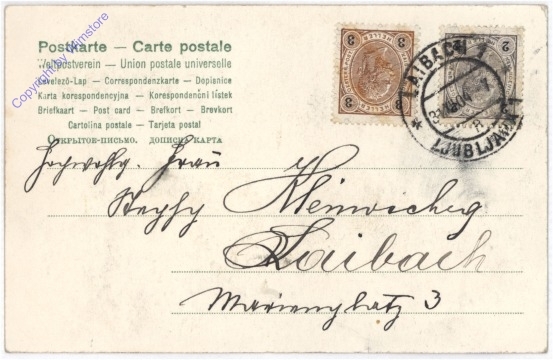 Postkarte — Carte postale
Weltpostverein — Union postale universelle
Levelező-Lap — Correspondenzkarte — Dopisnice
Karta korespondencyjna — Korespondenční lístek
Briefkaart — Post card — Brefkort — Brevkort
Cartolina postale — Tarjeta postal
Открытое-письмо. дописна карта
Copyright by Wimstore
3 3
2
LAIBACH 1
LJUBLJANA 1
Hochwohlg. Frau
Laibach
Marienplatz 3